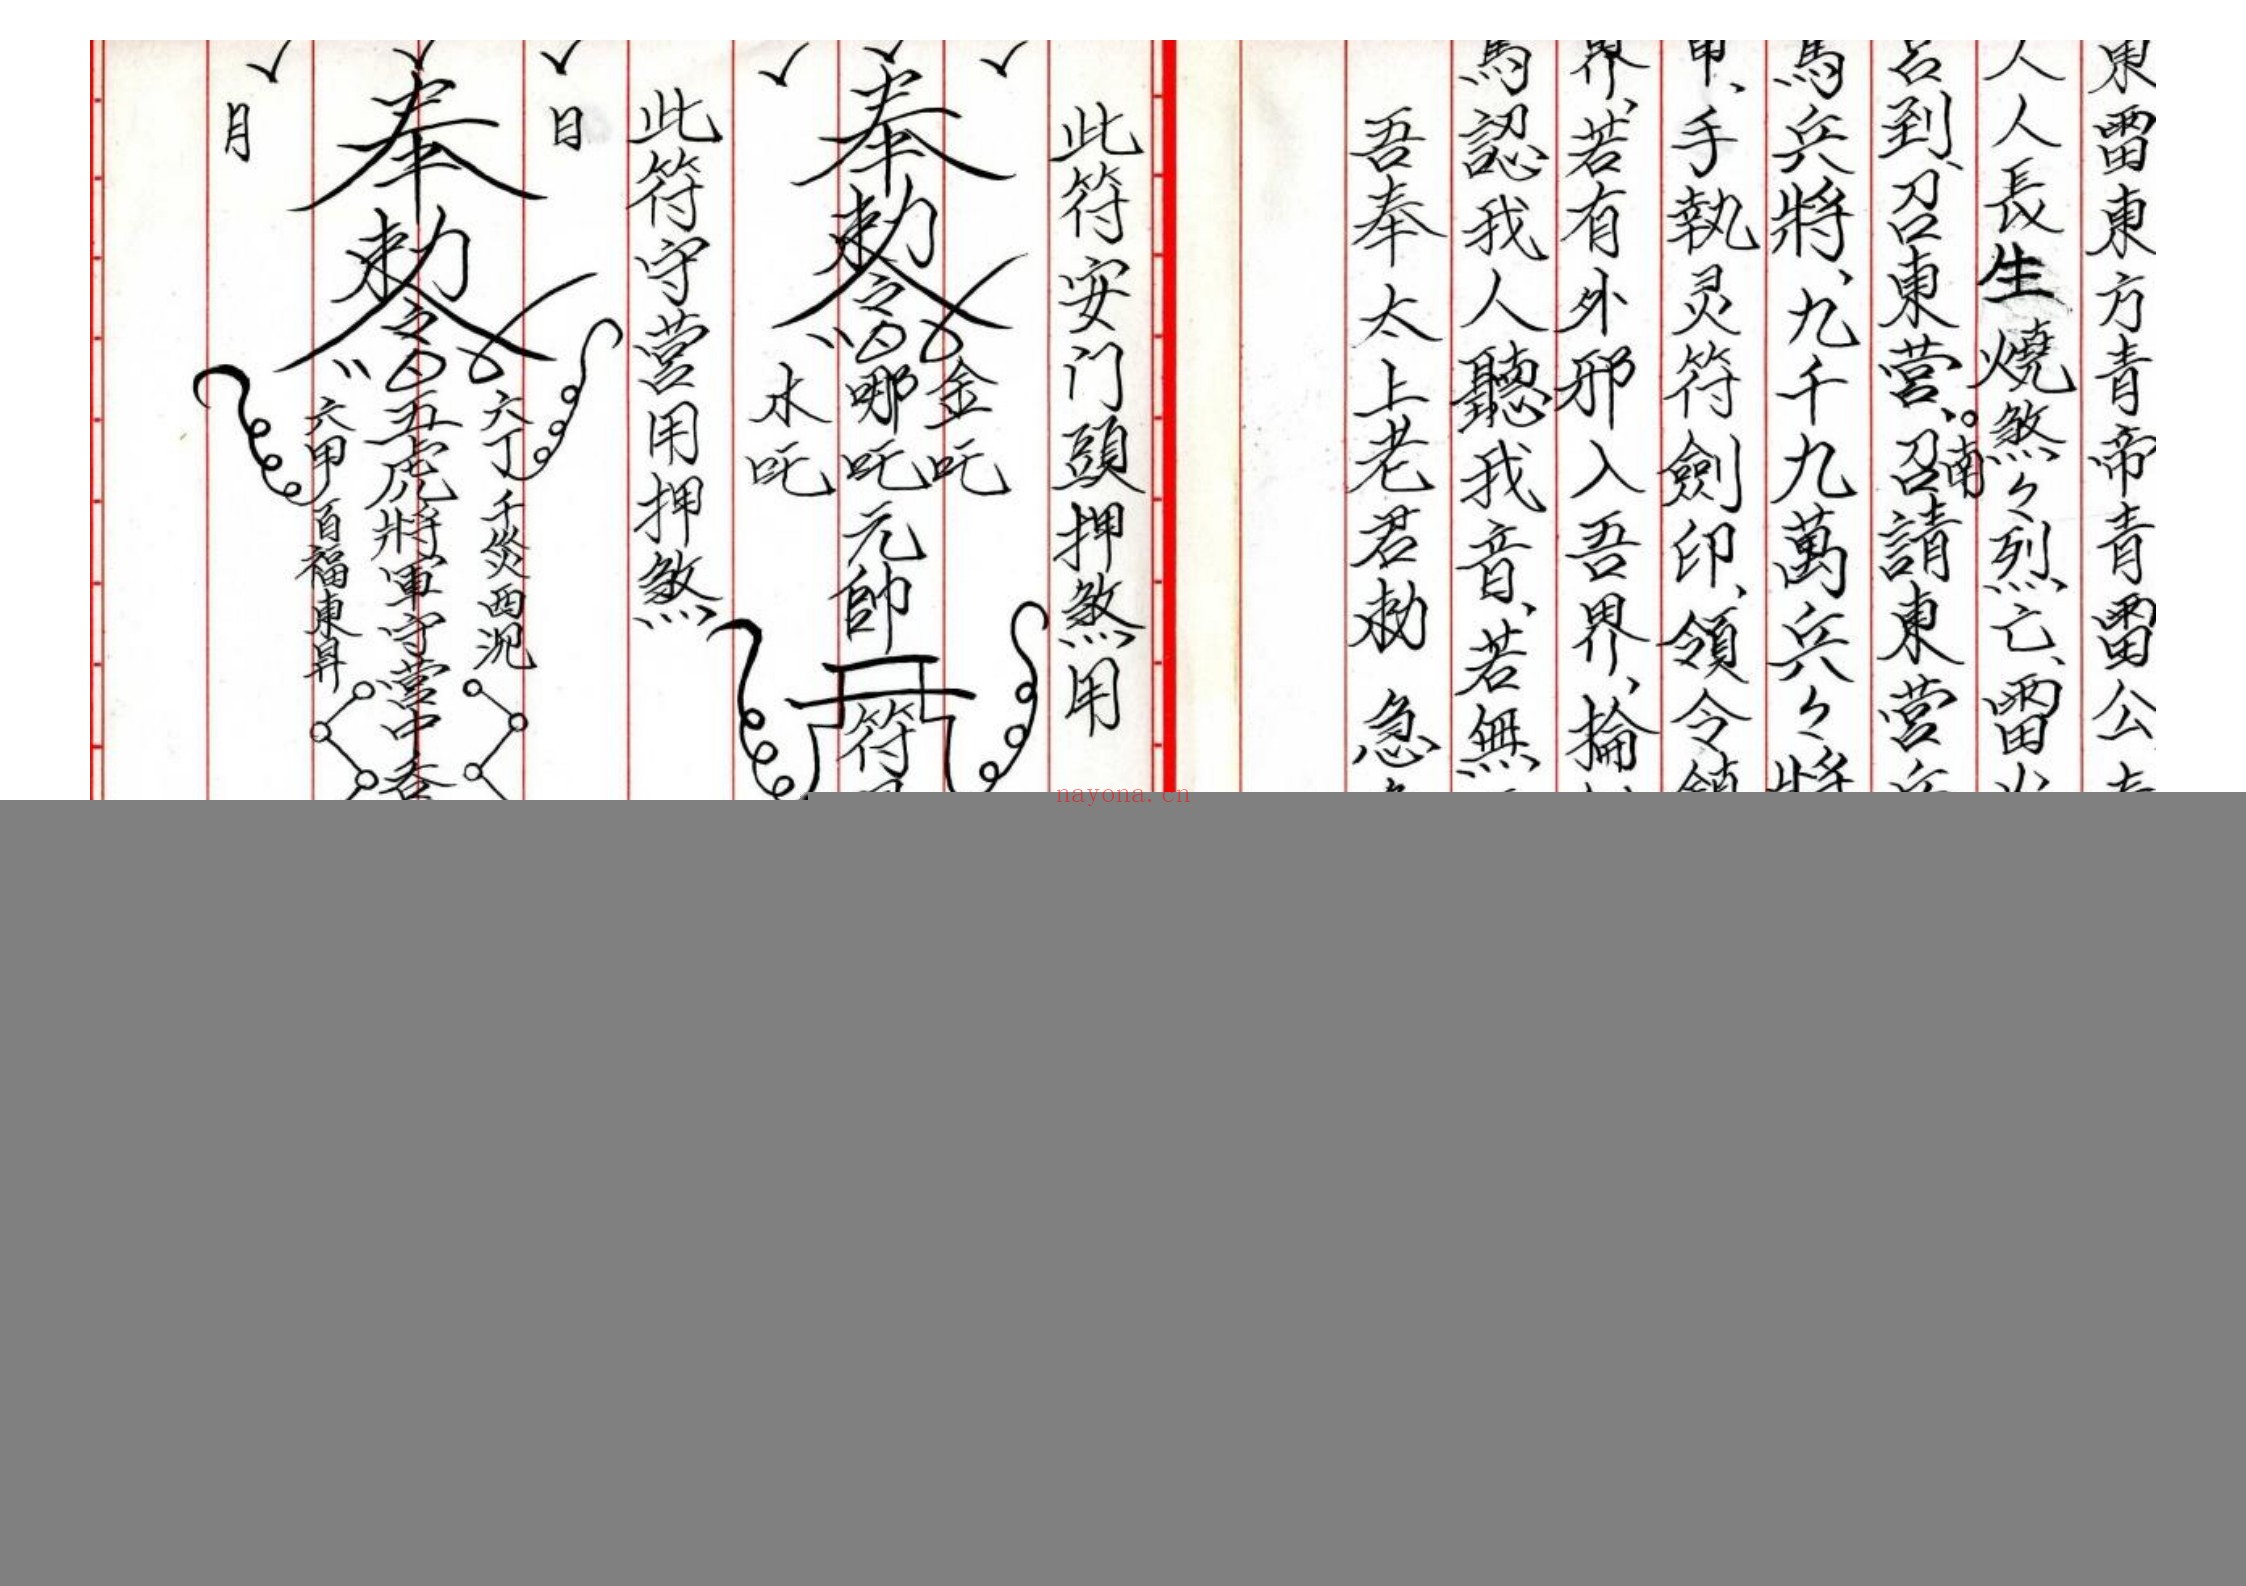 東雷東方青帝青雷公
人人長生燒煞々烈亡、雷火
召到、召東營、召請東營兵
南
馬兵將、九千九萬兵々將
甲、手執灵符劍印、領令鎮
界、若有外邪入吾界、掄
馬認我人聽我音、若無
吾奉太上老君勅 急
此符安门頭押煞用
奉勅令
金吒
哪吒元帥
水吒
符
此符守營用押煞
日
奉勅令
六丁千災西沉
五虎將軍守營中
六甲百福東昇
月
nayona.cn